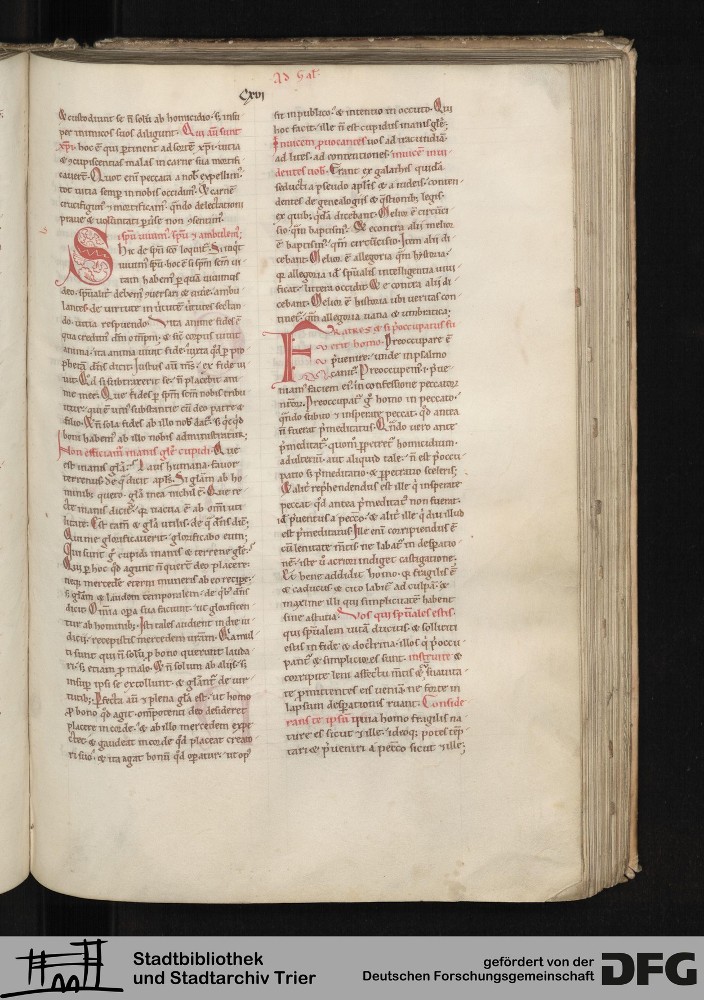 Ad Gal
Cxvi
& custodiunt se ñ solũ ab homicidio · s; insu
per inimicos suos diligunt · Qui aũ sunt
xp̃i · hoc ẽ qui ꝑtinent ad sortẽ xp̃i · uitia
& ꝯcupiscentias malas in carne sua mortifi
cauert̃ · Quot enĩ peccata a nob̃ expellim᷒ ·
tot uitia semꝑ in nobis occidim᷒ · & carnẽ
crucifigim᷒ & mortificam᷒ · qñdo delectationi
praue & uoluntati puerse non ꝯsentim᷒ ·
Si spũ uiuim᷒ · spũ & ambulem᷒;
Hic de spũ sc̃o loquit᷒ · Si inq̃t
uiuim᷒ spũ · hoc ẽ si spm̃ sc̃m ui
tam habem᷒ ꝑ quã uiuimus
deo · spualit̃ debem᷒ ꝯuersari & quiete · ambu
lantes de uirtute in uirtutẽ · uirtutes sectan
do · uitia respuendo · Vita anime fides ẽ
qua credim᷒ dm̃ om̃ptẽ · & sic̃ corpus uiuit
anima · ita anima uiuit fide · iuxta qd̃ ꝑ pro
phetã dñs dicit · Justus aũt ms̃ · ex fide ui
uit · Qd̃ si subtraxerit se · ñ placebit ani
me mee · Que fides ꝑ spm̃ sc̃m nobis tribu
itur · qui ẽ uni᷒ substantie cũ deo patre &
filio · & ñ sola fides ab illo nob̃ dat᷒ · s; qcq̃d
boni habem᷒ ab illo nobis administratur;
Non efficiam᷒ inanis glẽ cupidi · Que
est inanis glã? Laus humana · fauor
terrenus · de q̃ dicit apl̃s · Si glãm ab ho
minib; quero · glã mea nichil ẽ · Que re
cte inanis dicit᷒ · q̃ uacua ẽ ab om̃i uti
litate · Est tam̃ & glã utilis · de q̃ dñs dic̃;
Qui me glorificauerit · glorificabo eum;
Qui sunt g̃ cupidi inanis & terrene glẽ?
Qui ꝑ hoc qd̃ agunt ñ querũt deo placere ·
neq; mercede eterni muneris ab eo recipe;
s; glãm & laudem temporalem · de qb᷒ dñs
dicit · Om̃ia opa sua faciunt · ut glorificen
tur ab hominib; · Isti tales audient in die iu
dicii · recepistis mercedem ur̃am · Qua mul
ti sunt qui ñ solũ ꝑ bono querunt lauda
ri · s; etiam ꝑ malo · & ñ solum ab aliis · s;
insup ipsi se extollunt · & glãnt᷒ de uir
tutib; · Pfecta aũ & plena glã est · ut homo
ꝑ bono qd̃ agit · omp̃otenti deo desideret
placere in corde · & ab illo mercedem expe
ctet · & gaudeat in corde qd̃ placeat creato
ri suo · & ita agat bonũ qd̃ oꝑatur · ut op᷒
sit in publico · & intentio in occulto · Qui
hoc facit · ille ñ est cupidus inanis glẽ;
Inuicem ꝓuocantes uos ad iracundiã ·
ad lites · ad contentiones · inuicẽ inui
dentes uob̃ · Erant ex galathis quidã
seducti a pseudo apl̃is & a iudeis · conten
dentes de genealogiis & q̃stionib; legis ·
ex quib; qdã dicebant · Melior ẽ circũci
sio · qm̃ baptism᷒ · & econtra alii · melior
ẽ baptism᷒ · qm̃ circũcisio · Item alii di
cebant · Melior ẽ allegoria qm̃ hystoria ·
q̃ allegoria id spũalis intelligentia uiui
ficat · littera occidit · & e contra alii di
cebant · Melior ẽ historia ubi ueritas con
tinet᷒ · qm̃ allegoria uana & umbratica;
Fratres & si p̃occupatus fu
erit homo · Preoccupare ẽ
p̃uenire · unde in psalmo
canit᷒ · Preoccupem᷒ · i · p̃ue
niam᷒ faciem ei᷒ · in confessione peccatorũ
nr̃orũ · Preoccupat᷒ g̃ homo in peccato ·
qñdo subito & insperate peccat · qd̃ antea
ñ fuerat p̃meditatus · Qñdo uero ante
p̃meditat᷒ · quom̃ ꝑpetret homicidium ·
adulteriũ · aut aliquid tale · ñ est p̃occu
patio s; p̃meditatio · & ꝑpetratio sceleris;
& alit̃ reprehendendus est ille q̃ insperate
peccat · qd̃ antea p̃meditat᷒ non fuerit ·
id p̃uentus a peccõ · & alit̃ ille q̃ diu illud
est p̃meditatus · Ille enĩ corripiendus ẽ
cũ lenitate m̃tis ne labat᷒ in despatio
nẽ · iste ũ acriori indiget castigatione ·
Et bene addidit homo · q̃ fragilis ẽ
& caducus · & cito labit᷒ ad culpã · &
maxime illi qui simplicitatẽ habent
sine astutia · Vos qui spũales estis ·
qui spũalem uitã ducitis · & solliciti
estis in fide & doctrina · illos q̃ p̃occu
pati · & simpliciores sunt · instruite &
corripite leni affectu m̃tis
te · p̃nitentes eis ueniã · ne forte in
lapsum desꝑationis ruant · Conside
rans te ipsũ · quia homo fragilis na
ture es sicut & ille · ideoq; potes tẽp
tari · & p̃ueniri a peccõ sicut & ille;
Stadtbibliothek
und Stadtarchiv Trier
gefördert von der
Deutschen Forschungsgemeinschaft
DFG